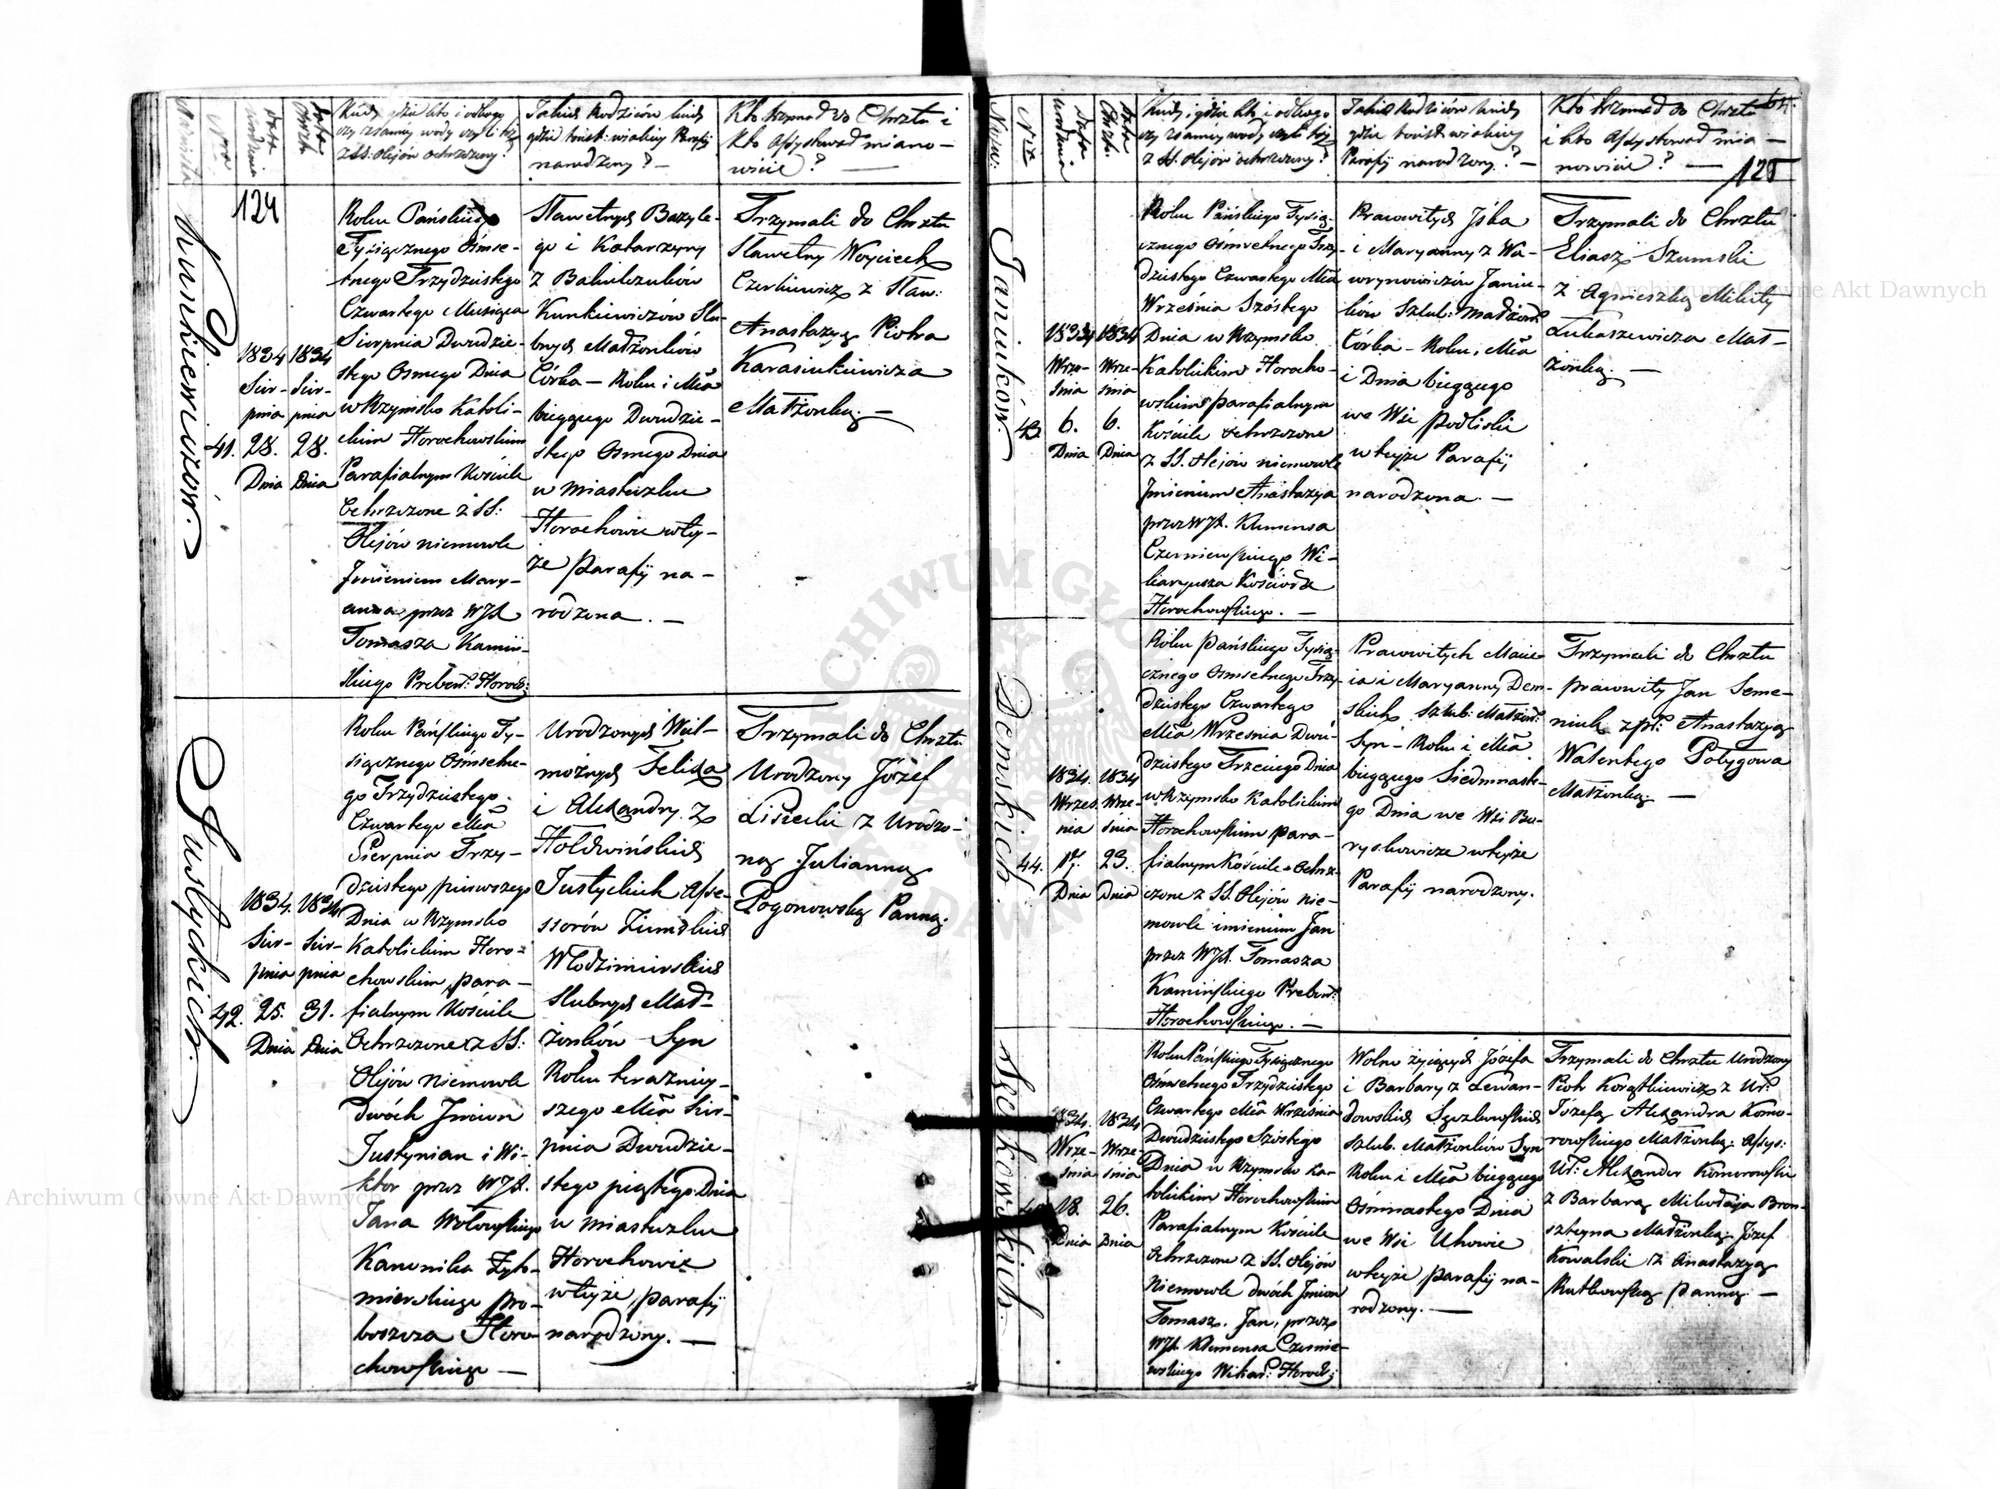 Nazwiska
Nro
Data urodzenia
Data Chrztu
Kiedy gdzie kto i od kogo
czy z samej wody czyli też
z SS. Olejów ochrzczony?
Jakich Rodziców kiedy
gdzie tudzież w jakiey Parafij
narodzony? —
Kto trzymał do Chrztu i
kto Assystował miano-
wicie? —
124
Kunkiewiczów.
41.
1834
Sier-
pnia
28.
Dnia
1834
Sier-
pnia
28.
Dnia
Roku Pańskiego
Tysiącznego Ośmse-
tnego Trzydziestego
Czwartego Miesiąca
Sierpnia Dwudzie-
stego Osmego Dnia
w Rzymsko Katoli-
ckim Horochowskim
Parafialnym Kościele
Ochrzczone z SS:
Olejów niemowle
Imieniem Mary-
anna przez WJX
Tomasza Kamiń-
skiego Prebend: Horoch:
Sławetnych Bazyle-
go i Katarzyny
z Bakulczuków
Kunkiewiczów Slu-
bnych Małżonków
Córka — Roku i Mca
bieżącego Dwudzie-
stego Osmego Dnia
w Miasteczku
Horochowie w tey-
że Parafij na-
rodzona. —
Trzymali do Chrztu
Sławetny Woyciech
Czerkiewicz z Sław:
Anastazyą Piotra
Karasiukiewicza
Małżonką. —
Justyckich.
42.
1834.
Sier-
pnia
25.
Dnia
1834.
Sier-
pnia
31.
Dnia
Roku Pańskiego Ty-
siącznego Ośmsetne-
go Trzydziestego
Czwartego Mca
Sierpnia Trzy-
dziestego pierwszego
Dnia w Rzymsko
Katolickim Horo-
chowskim para-
fialnym Kościele
Ochrzczone z SS:
Olejów Niemowle
dwóch Imion
Justynian i Wi-
ktor przez WJX.
Jana Wołowskiego
Kanonika Żyto-
mierskiego Pro-
boszcza Horo-
chowskiego —
Urodzonych Wiel-
możnych Felixa
i Alexandry z
Hołdwińskich
Justyckich Asse-
ssorów Ziemskich
Włodzimirskich
slubnych Mał-
żonków — Syn
Roku teraznie-
szego Mca Sier-
pnia Dwudzie-
stego piątego Dnia
w Miasteczku
Horochowie
w teyże parafij
narodzony. —
Trzymali do Chrztu
Urodzony Józef
Lisiecki z Urodzo-
ną Julianną
Pogonowską Panną.
Nazw:
Nro
Data urodzenia
Data Chrztu
Kiedy i gdzie kto i od kogo
czy z samey wody czyli też
z SS. Olejów ochrzczony?
Jakich Rodziców kiedy
gdzie tudzież w jakiey
Parafij narodzony? —
Kto trzymał do Chrztu
i kto Assystował mia-
nowicie? —
125
Janiuków.
43.
1834
Wrze-
śnia
6.
Dnia
1834
Wrze-
śnia
6.
Dnia
Roku Pańskiego Tysią-
cznego Ośmsetnego Trzy-
dziestego Czwartego Mca
Września Szóstego
Dnia w Rzymsko
Katolickim Horocho-
wskim parafialnym
Kościele ochrzczone
z SS. Olejów niemowle
Imieniem Anastazya
przez WJX. Klemensa
Czerniewskiego Wi-
karyusza Kościoła
Horochowskiego. —
Prawowitych Jśka
i Maryanny z Wa-
wrynowiczów Janiu-
ków Szlub: Małżonk:
Córka — Roku, Mca
i Dnia bieżącego
we Wsi Podliski
w teyże Parafij
narodzona. —
Trzymali do Chrztu
Eliasz Szumski
z Agnieszką Mikity
Łukaszewicza Mał-
żonką. —
Demskich.
44.
1834.
Wrześ.
nia
17.
Dnia
1834
Wrze-
śnia
23.
Dnia
Roku Pańskiego Tysią-
cznego Osmsetnego Trzy-
dziestego Czwartego
Mca Września Dwu-
dziestego Trzeciego Dnia
w Rzymsko Katolickim
Horochowskim para-
fialnym Kościele Ochrz-
czone z SS. Olejów Nie-
mowle imieniem Jan
przez WJX. Tomasza
Kamińskiego Prebend:
Horochowskiego. —
Prawowitych Macie-
ia i Maryanny Dem-
skich Szlub: Małżonk:
Syn — Roku i Mca
bieżącego Siedmnaste-
go Dnia we Wsi Bo-
ryskowicze w teyże
Parafij narodzony.
Trzymali do Chrztu
prawowity Jan Seme-
niuk z pr: Anastazyą
Walentego Potygowa
Małżonką —
1834.
Wrze-
śnia
18.
Dnia
1834
Wrze-
śnia
26.
Dnia
Roku Pańskiego Tysiącznego
Ośmsetnego Trzydziestego
Czwartego Mca Września
Dwudziestego Szóstego
Dnia w Rzymsko Ka-
tolickim Horochowskim
Parafialnym Kościele
Ochrzczone z SS. Olejów
Niemowle dwóch Imion
Tomasz, Jan, przez
WJX Klemensa Czernie-
wskiego Wikar: Horoch:
Wolno żyjących Józefa
i Barbary z Lewan-
dowskich
Szlub. Małżonków Syn
Roku i Mca bieżącego
Ośmnastego Dnia
we Wsi Uhowie
w teyże parafij na-
rodzony. —
Trzymali do Chrztu Urodzony
Piotr Korątkiewicz z Ur:
Józefą Alexandra Komo-
rowskiego Małżonką. Assys:
Ur: Alexander Komorowski
z Barbarą Mikołaja Bron-
szteyna Małżonką. Józef
Kowalski z Anastazyą
Rutkowską Panną. —
Archiwum Główne Akt Dawnych
Archiwum Główne Akt Dawnych
ARCHIWUM GŁÓWNE AKT DAWNYCH